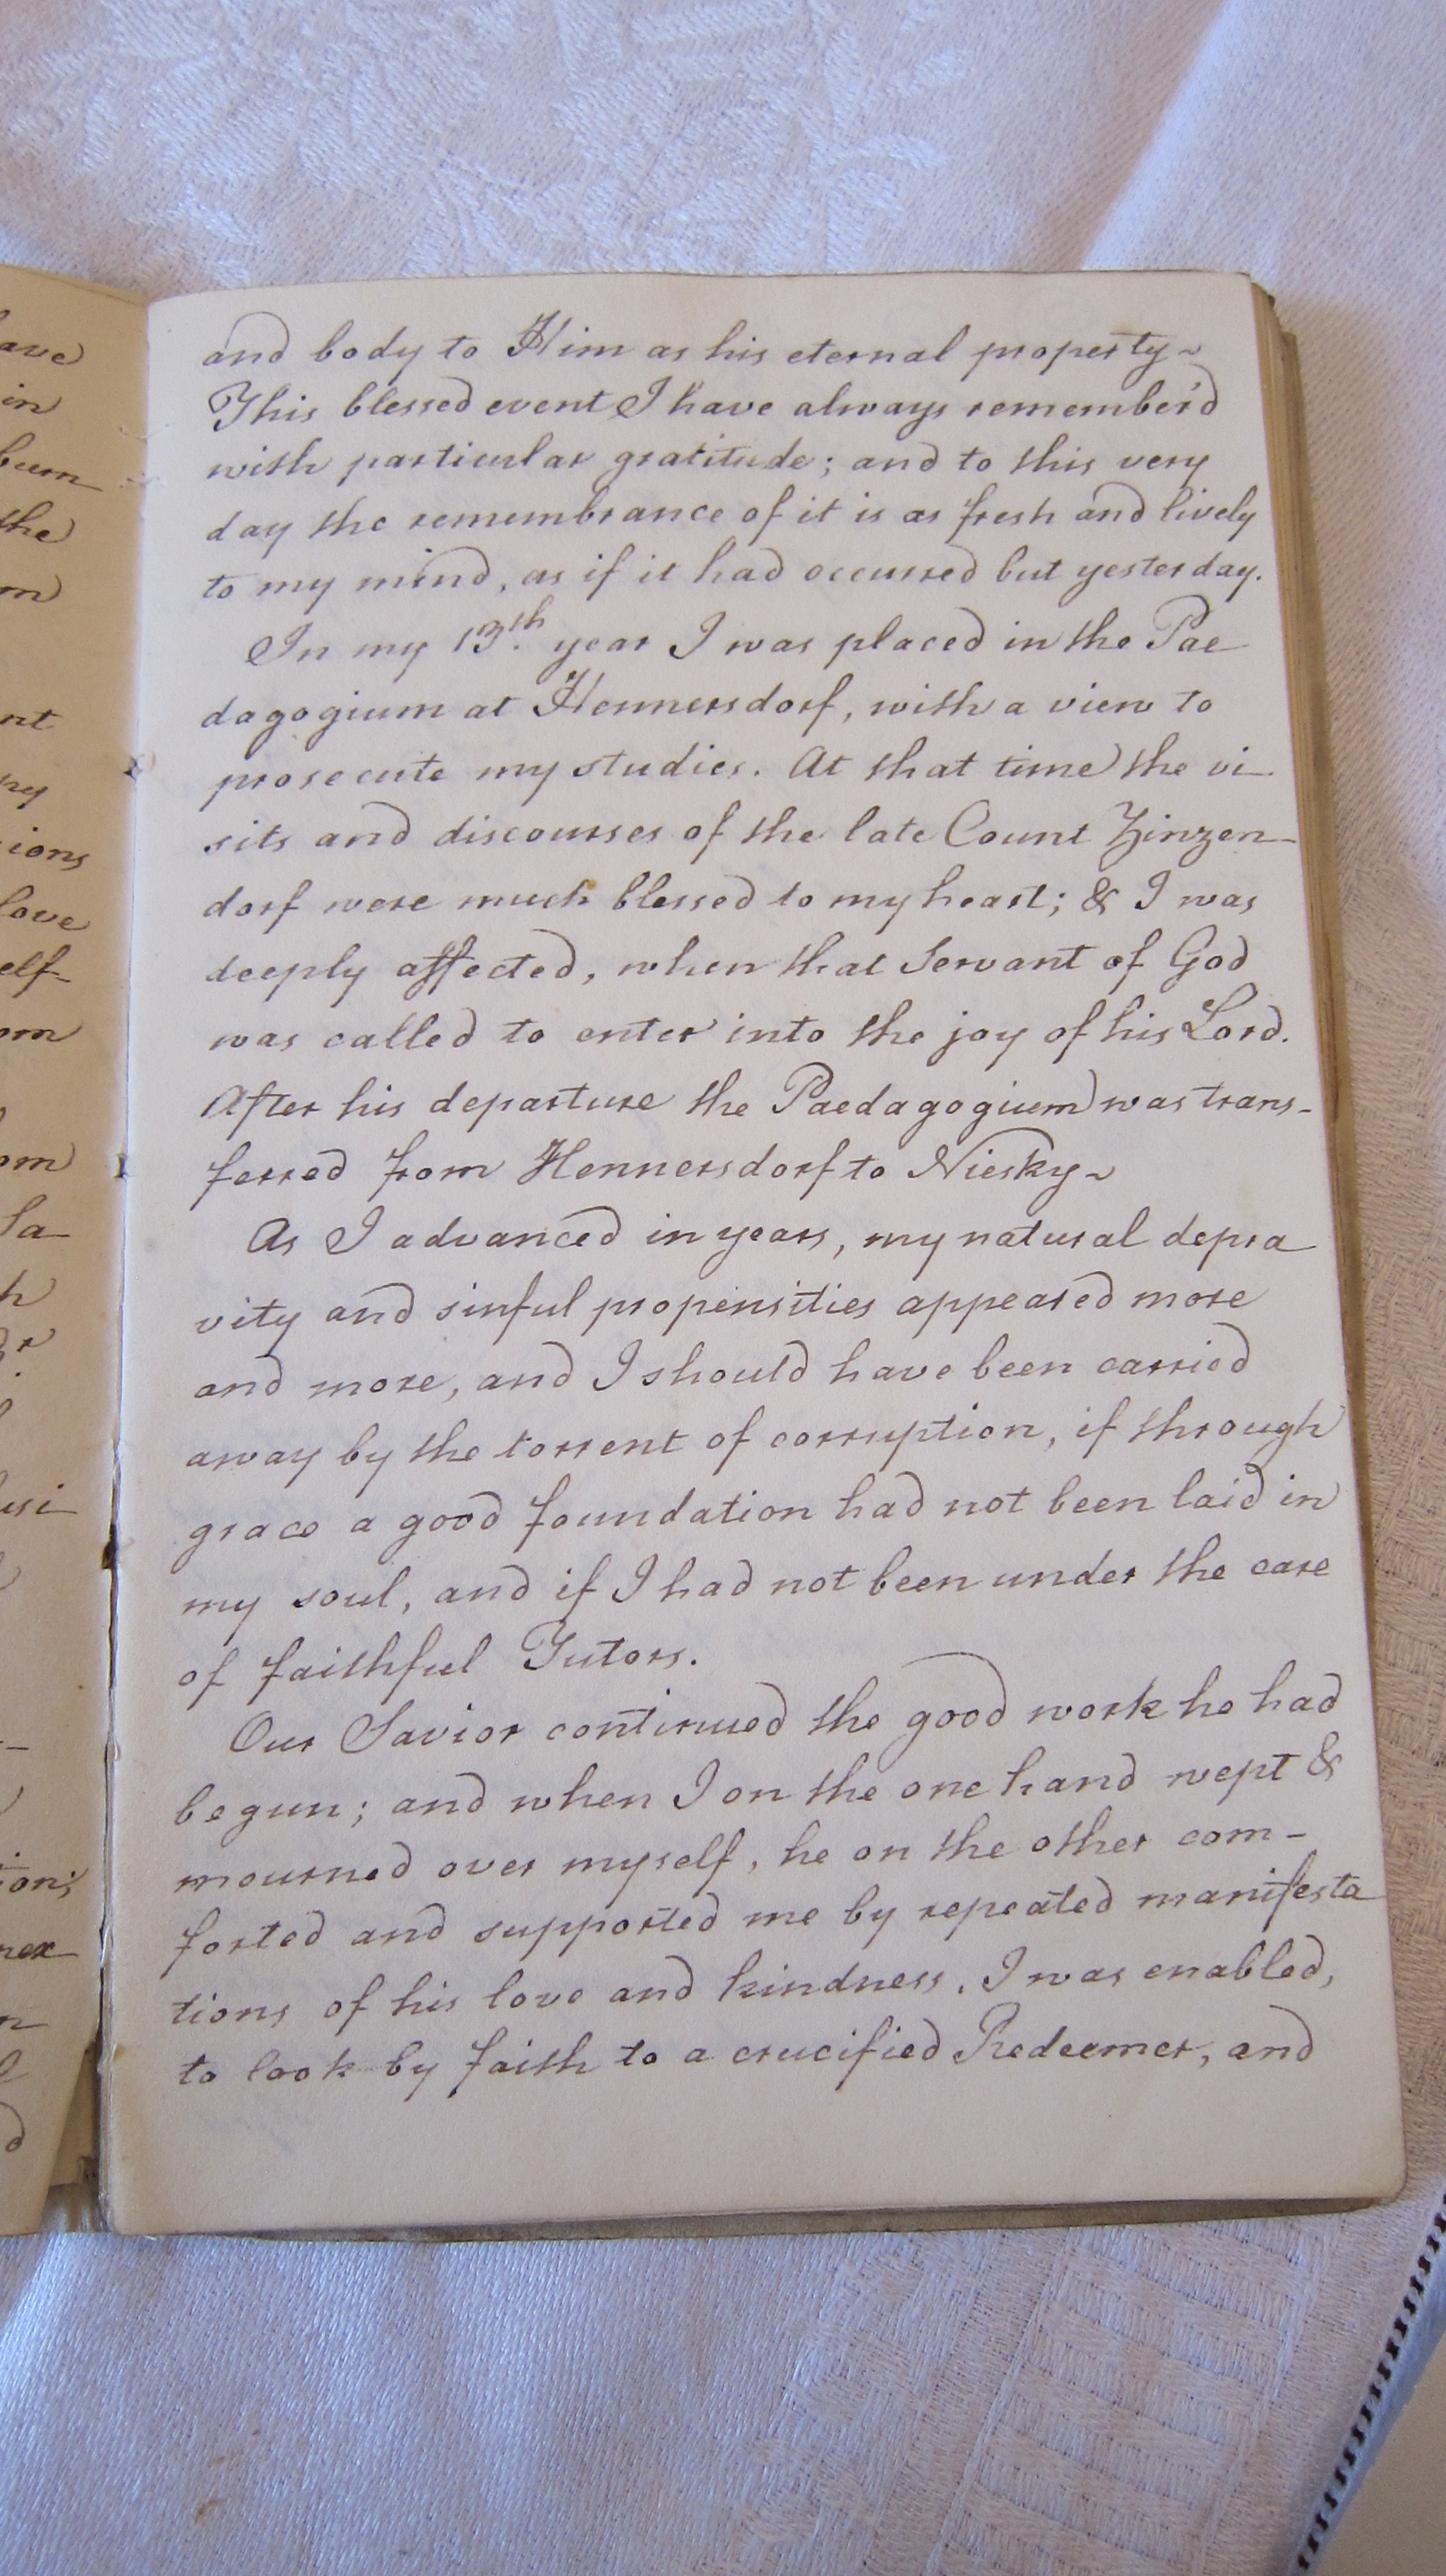 and body to Him as his eternal property~
This blessed event I have always remember'd
with particular gratitude; and to this very
day the remembrance of it is as fresh and lively
to my mind, as if it had occurred but yesterday.
In my 13th. year I was placed in the Pae
dagogium at Hennersdorf, with a view to
prosecute my studies. At that time the vi-
sits and discourses of the late Count Zinzen-
dorf were much blessed to my heart; & I was
deeply affected, when that Servant of God
was called to enter into the joy of his Lord.
After his departure the Paedagogium was trans-
ferred from Hennersdorf to Niesky~
As I advanced in years, my natural depra
vity and sinful propensities appeared more
and more, and I should have been carried
away by the torrent of corruption, if through
grace a good foundation had not been laid in
my soul, and if I had not been under the care
of faithful Tutors.
Our Savior continued the good work he had
begun; and when I on the one hand wept &
mourned over myself, he on the other com-
forted and supported me by repeated manifesta
tions of his love and kindness. I was enabled,
to look by faith to a crucified Redeemer, and